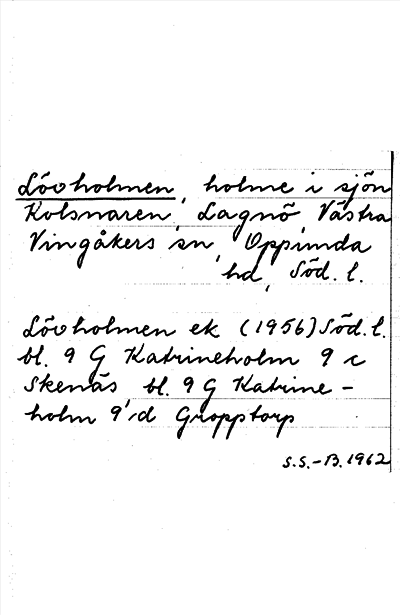 Lövholmen, holme i sjön
Kolsnaren, Lagnö, Västra
Vingåkers sn, Oppunda
hd, Söd. l.
Lövholmen ek (1956) Söd. l.
bl. 9 G Katrineholm 9 c
Skenäs bl. 9 G Katrine-
holm 9 d Gropptorp
S.S.-B. 1962